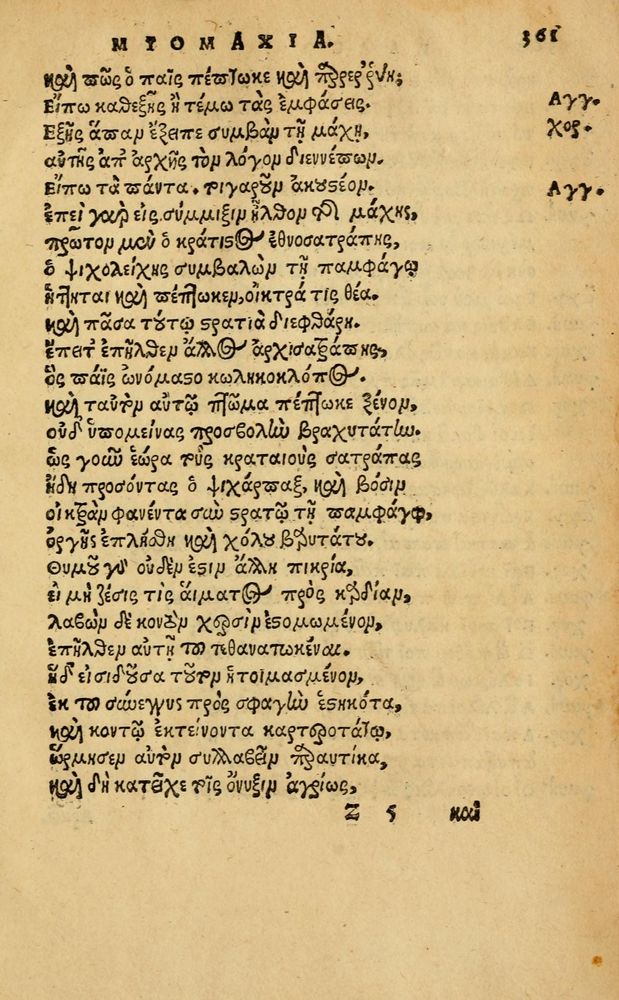 ΜΥΟΜΑΧΙΑ. 361
καὶ πῶς ὁ παῖς πέπτωκε καὶ
Εἴπω καθεξῆς ἢ τέμω τὰς ἐμφάσεις. Αγγ.
Εξῆς ἅπαν ἔξειπε συμβὰν τῇ μάχῃ, χορ.
αὐτῆς ἀπ' ἀρχῆς τὸν λόγον διεννέπων.
Εἴπω τὰ πάντα. τιγαροῦν ἀκουστέον. Αγγ.
ἐπεὶ γὰρ εἰς σύμμιξιν ἦλθον τῆς μάχης,
πρῶτον μὲν ὁ κράτιστος ἐθνοσατράπης,
ὁ ψιχολείχης συμβαλὼν τῇ παμφάγῳ
ἥττηται καὶ πέπτωκεν, οἰκτρά τις θέα.
καὶ πᾶσα τούτῳ στρατιὰ διεφθάρη.
ἔπειτ' ἐπῆλθεν ἄλλος ἀρχισατράπης,
ὃς παῖς ὠνόμαστο κωληκοκλόπος.
καὶ ταυτὸν αὐτῷ πτῶμα πέπτωκε ξένον,
οὐδ' ὑπομείνας προσβολὴν βραχυτάτην.
ὡς γοῦν ἑώρα τοὺς κραταιοὺς σατράπας
ἤδη προσόντας ὁ ψιχάρπαξ, καὶ βόσιν
οἰκτρὰν φανέντα σὺν στρατῷ τῇ παμφάγῳ,
ὀργῆς ἐπλήσθη καὶ χόλου βαρυτάτου.
Θυμοῦ γὰρ οὐδέν ἐστιν ἄλλη πικρία,
εἰ μὴ ζέσις τις αἵματος πρὸς καρδίαν,
λαβὼν δὲ κοντὸν χερσὶν ἐστομωμένον,
ἐπῆλθεν αὐτῇ τοῦ τεθανατωκέναι.
ἡ δ' εἰσιδοῦσα τοῦτον ἡτοιμασμένον,
ἐκ τοῦ σύνεγγυς πρὸς σφαγὴν ἑστηκότα,
καὶ κοντῷ ἐκτείνοντα καρτεροτάτῳ,
ὥρμησεν αὐτὸν συλλαβεῖν παραυτίκα,
καὶ δὴ κατέσχε τοῖς ὄνυξιν ἀγρίως,
Z 5 καὶ